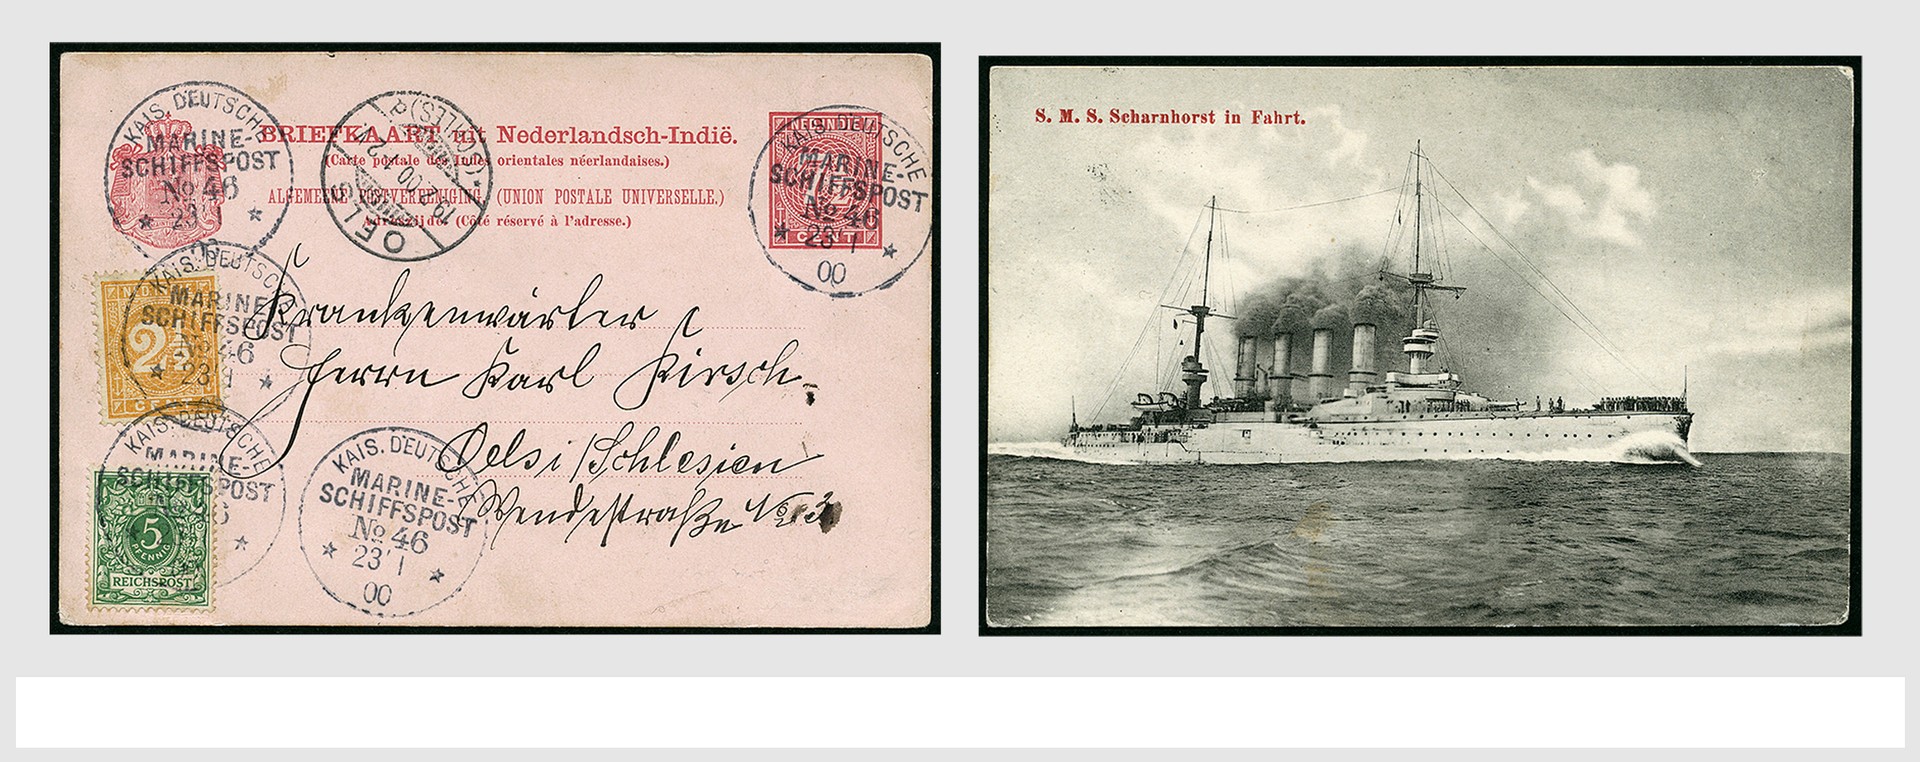 BRIEFKAART uit Nederlandsch-Indië.
(Carte postale des Indes orientales néerlandaises.)
ALGEMEENE POSTVEREENIGING (UNION POSTALE UNIVERSELLE.)
Adreszijde. (Côté réservé à l'adresse.)
KAIS. DEUTSCHE
MARINE-
SCHIFFSPOST
No 46
23/1
OELS
19/2.00
NED. INDIË
CENT
KAIS. DEUTSCHE
MARINE-
SCHIFFSPOST
No 46
23/1
00
KAIS. DEUTSCHE
MARINE-
SCHIFFSPOST
No 46
23/1
2½
CENT
Krankenwärter
Herrn Karl Kirsch
Oels i/Schlesien
Wendestraße
KAIS. DEUTSCHE
MARINE-
SCHIFFSPOST
5
PFENNIG
REICHSPOST
KAIS. DEUTSCHE
MARINE-
SCHIFFSPOST
No 46
23/1
00
S. M. S. Scharnhorst in Fahrt.